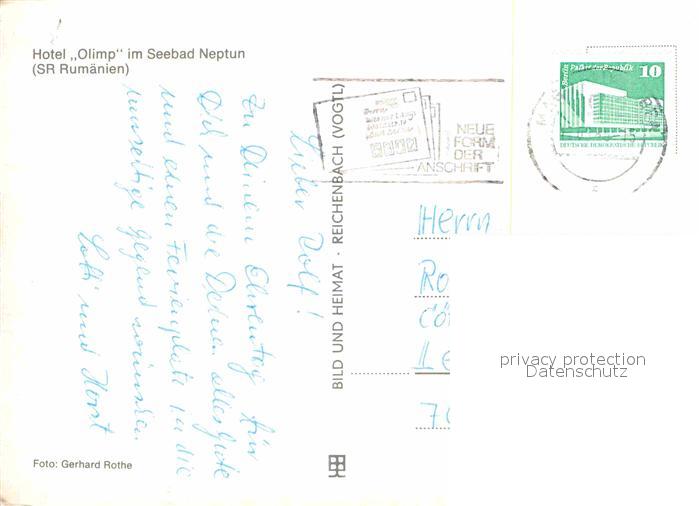 Hotel „Olimp" im Seebad Neptun
(SR Rumänien)
Lieber Rolf!
Zu Deinem Ehrentag für
Dich und die Deinen alles Gute
und einen Ferienplatz in die
umseitige Gegend wünschen
Lotti und Horst
Foto: Gerhard Rothe
BILD UND HEIMAT · REICHENBACH (VOGTL)
NEUE
FORM
DER
ANSCHRIFT
Berlin Palast der Republik
10
DEUTSCHE DEMOKRATISCHE REPUBLIK
Herrn
Ro
Le
70
privacy protection
Datenschutz